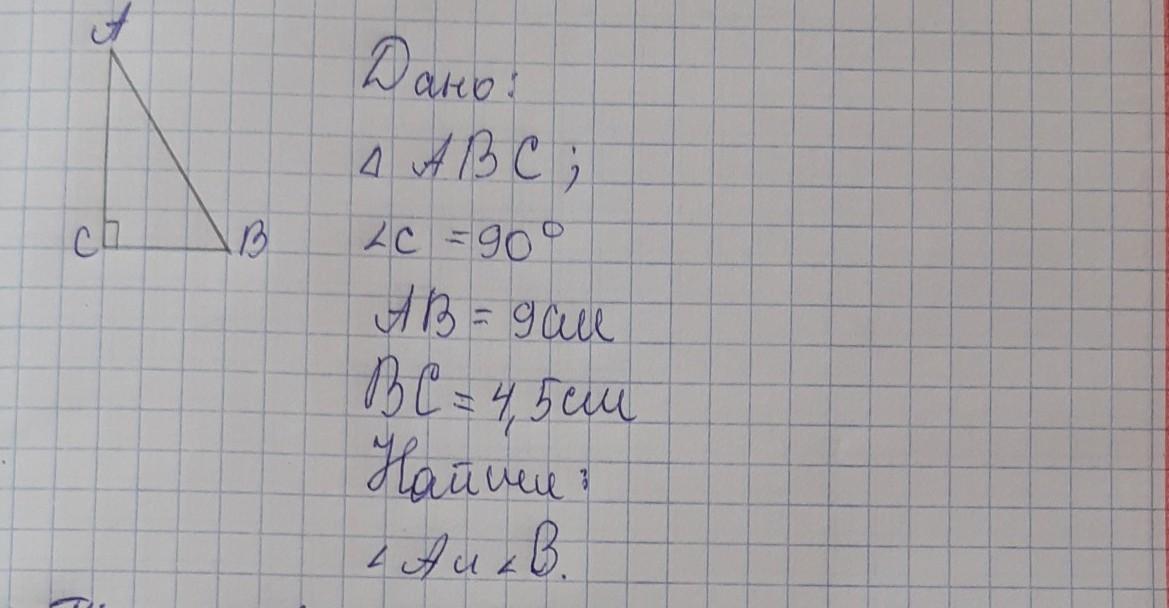 A
Дано:
Δ ABC;
C
B
∠C = 90°
AB = 9см
BC = 4,5см
Найти:
∠A и ∠B.